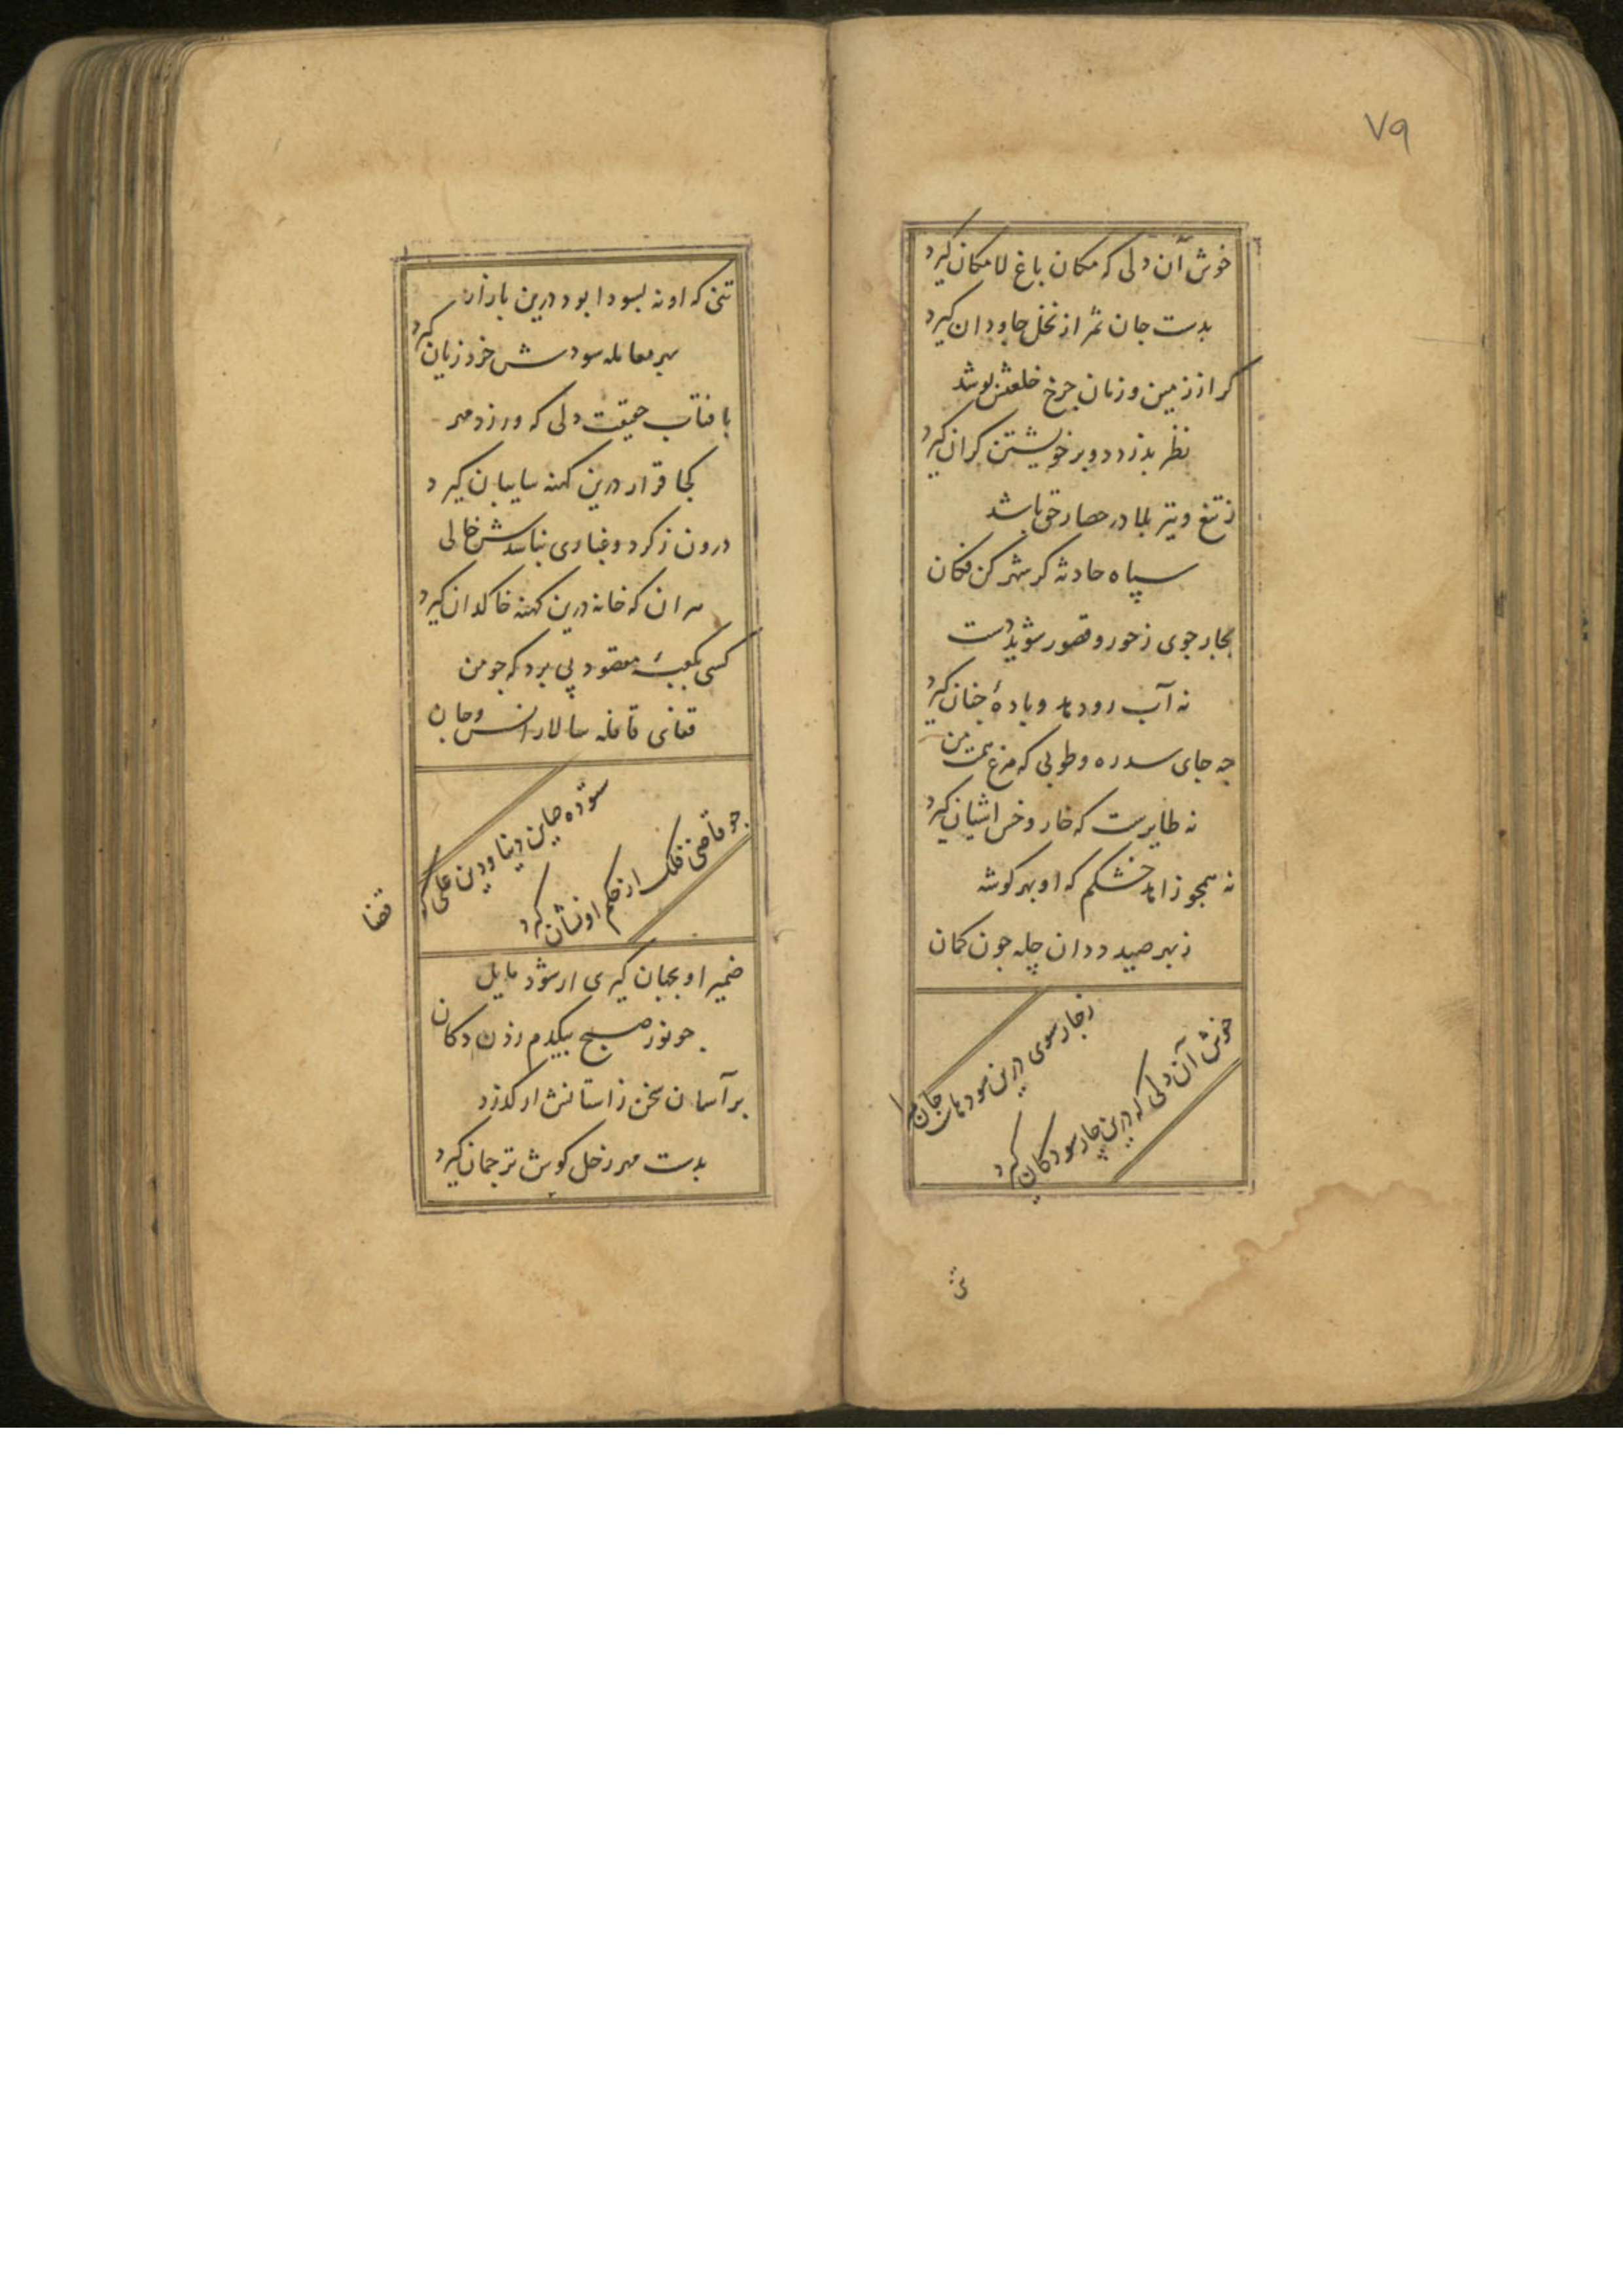 ۷۹
خوش آن دلی که مکان باغ لامکان گیرد
بدست جان ثمر از نخل جاودان گیرد
کر از زمین و زمان چرخ خلعتش پوشد
نظر بدزدد و بر خویشتن کران گیرد
ز تیغ و تیر بلا در حصار حق باشد
سپاه حادثه کر شهر کن فکان
بجار جوی ز حور و قصور شوید دست
نه آب رود و بادهٔ جنان گیرد
چه جای سدره و طوبی که مرغ همت من
نه طایرست که خار و خس اشیان گیرد
نه همجو زاهد خشکم که او بهر کوشه
ز بهر صید ددان چله جون کمان
ز جار سوی درین سود هاست جان مرا
خوش آن دلی که درین چار سو دکان گیرد
تنی که او نه بسودا بود درین بازار
بهر معامله سودش خرد زیان گیرد
بافتاب حقیقت دلی که ورزد مهر
کجا قرار درین کهنه سایبان گیرد
درون ز کرد و غباری نباشدش خالی
هر ان که خانه درین کهنه خاکدان گیرد
کسی بکعبهٔ مقصود پی برد که جو من
قفای قافله سالار انس و جان
ستوده حامی دنیا و دین علی که قضا
جو قاضی فلک از حکم او نشان گیرد
ضمیر او بجهان گیری ار شود مایل
جو نور صبح بیکدم دکان
بر آسمان سخن ز استانش ار کذرد
بدست مهر زحل کوش ترجمان گیرد